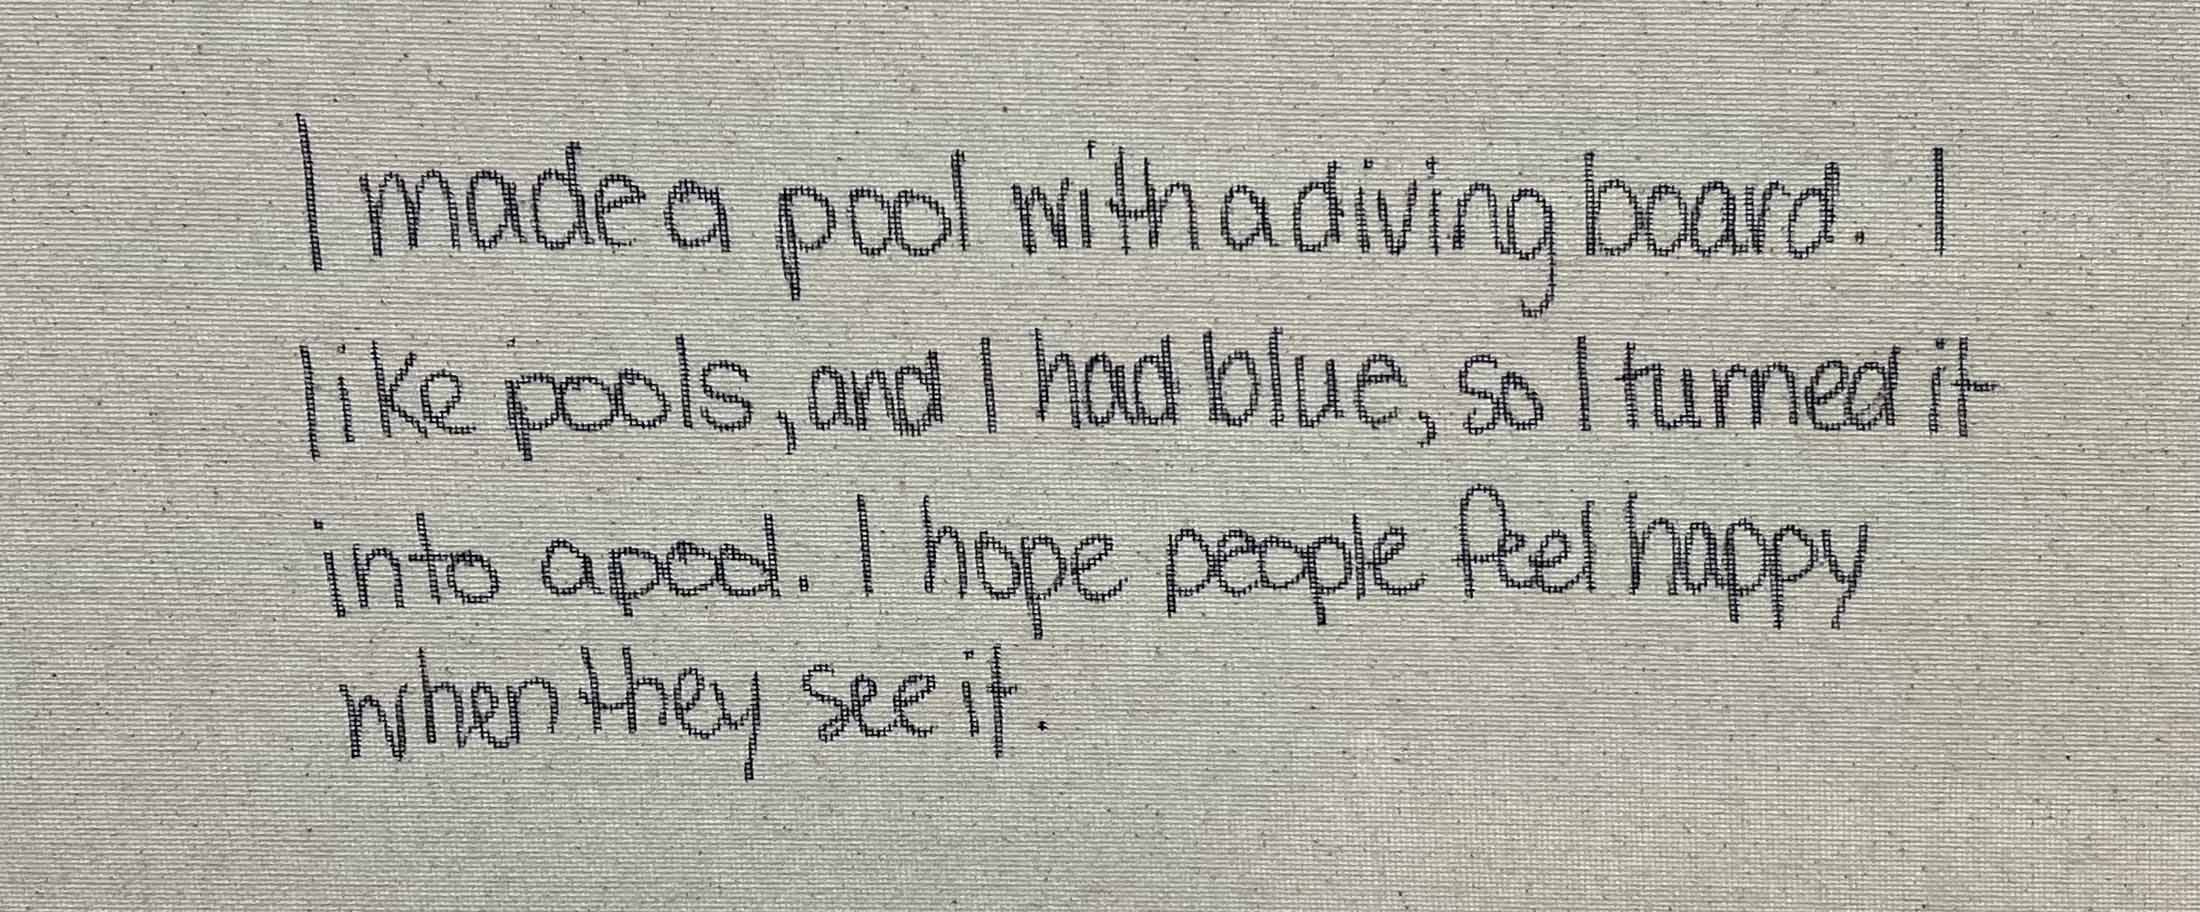 I made a pool with a diving board. I
like pools, and I had blue, so I turned it
into a pool. I hope people feel happy
when they see it.